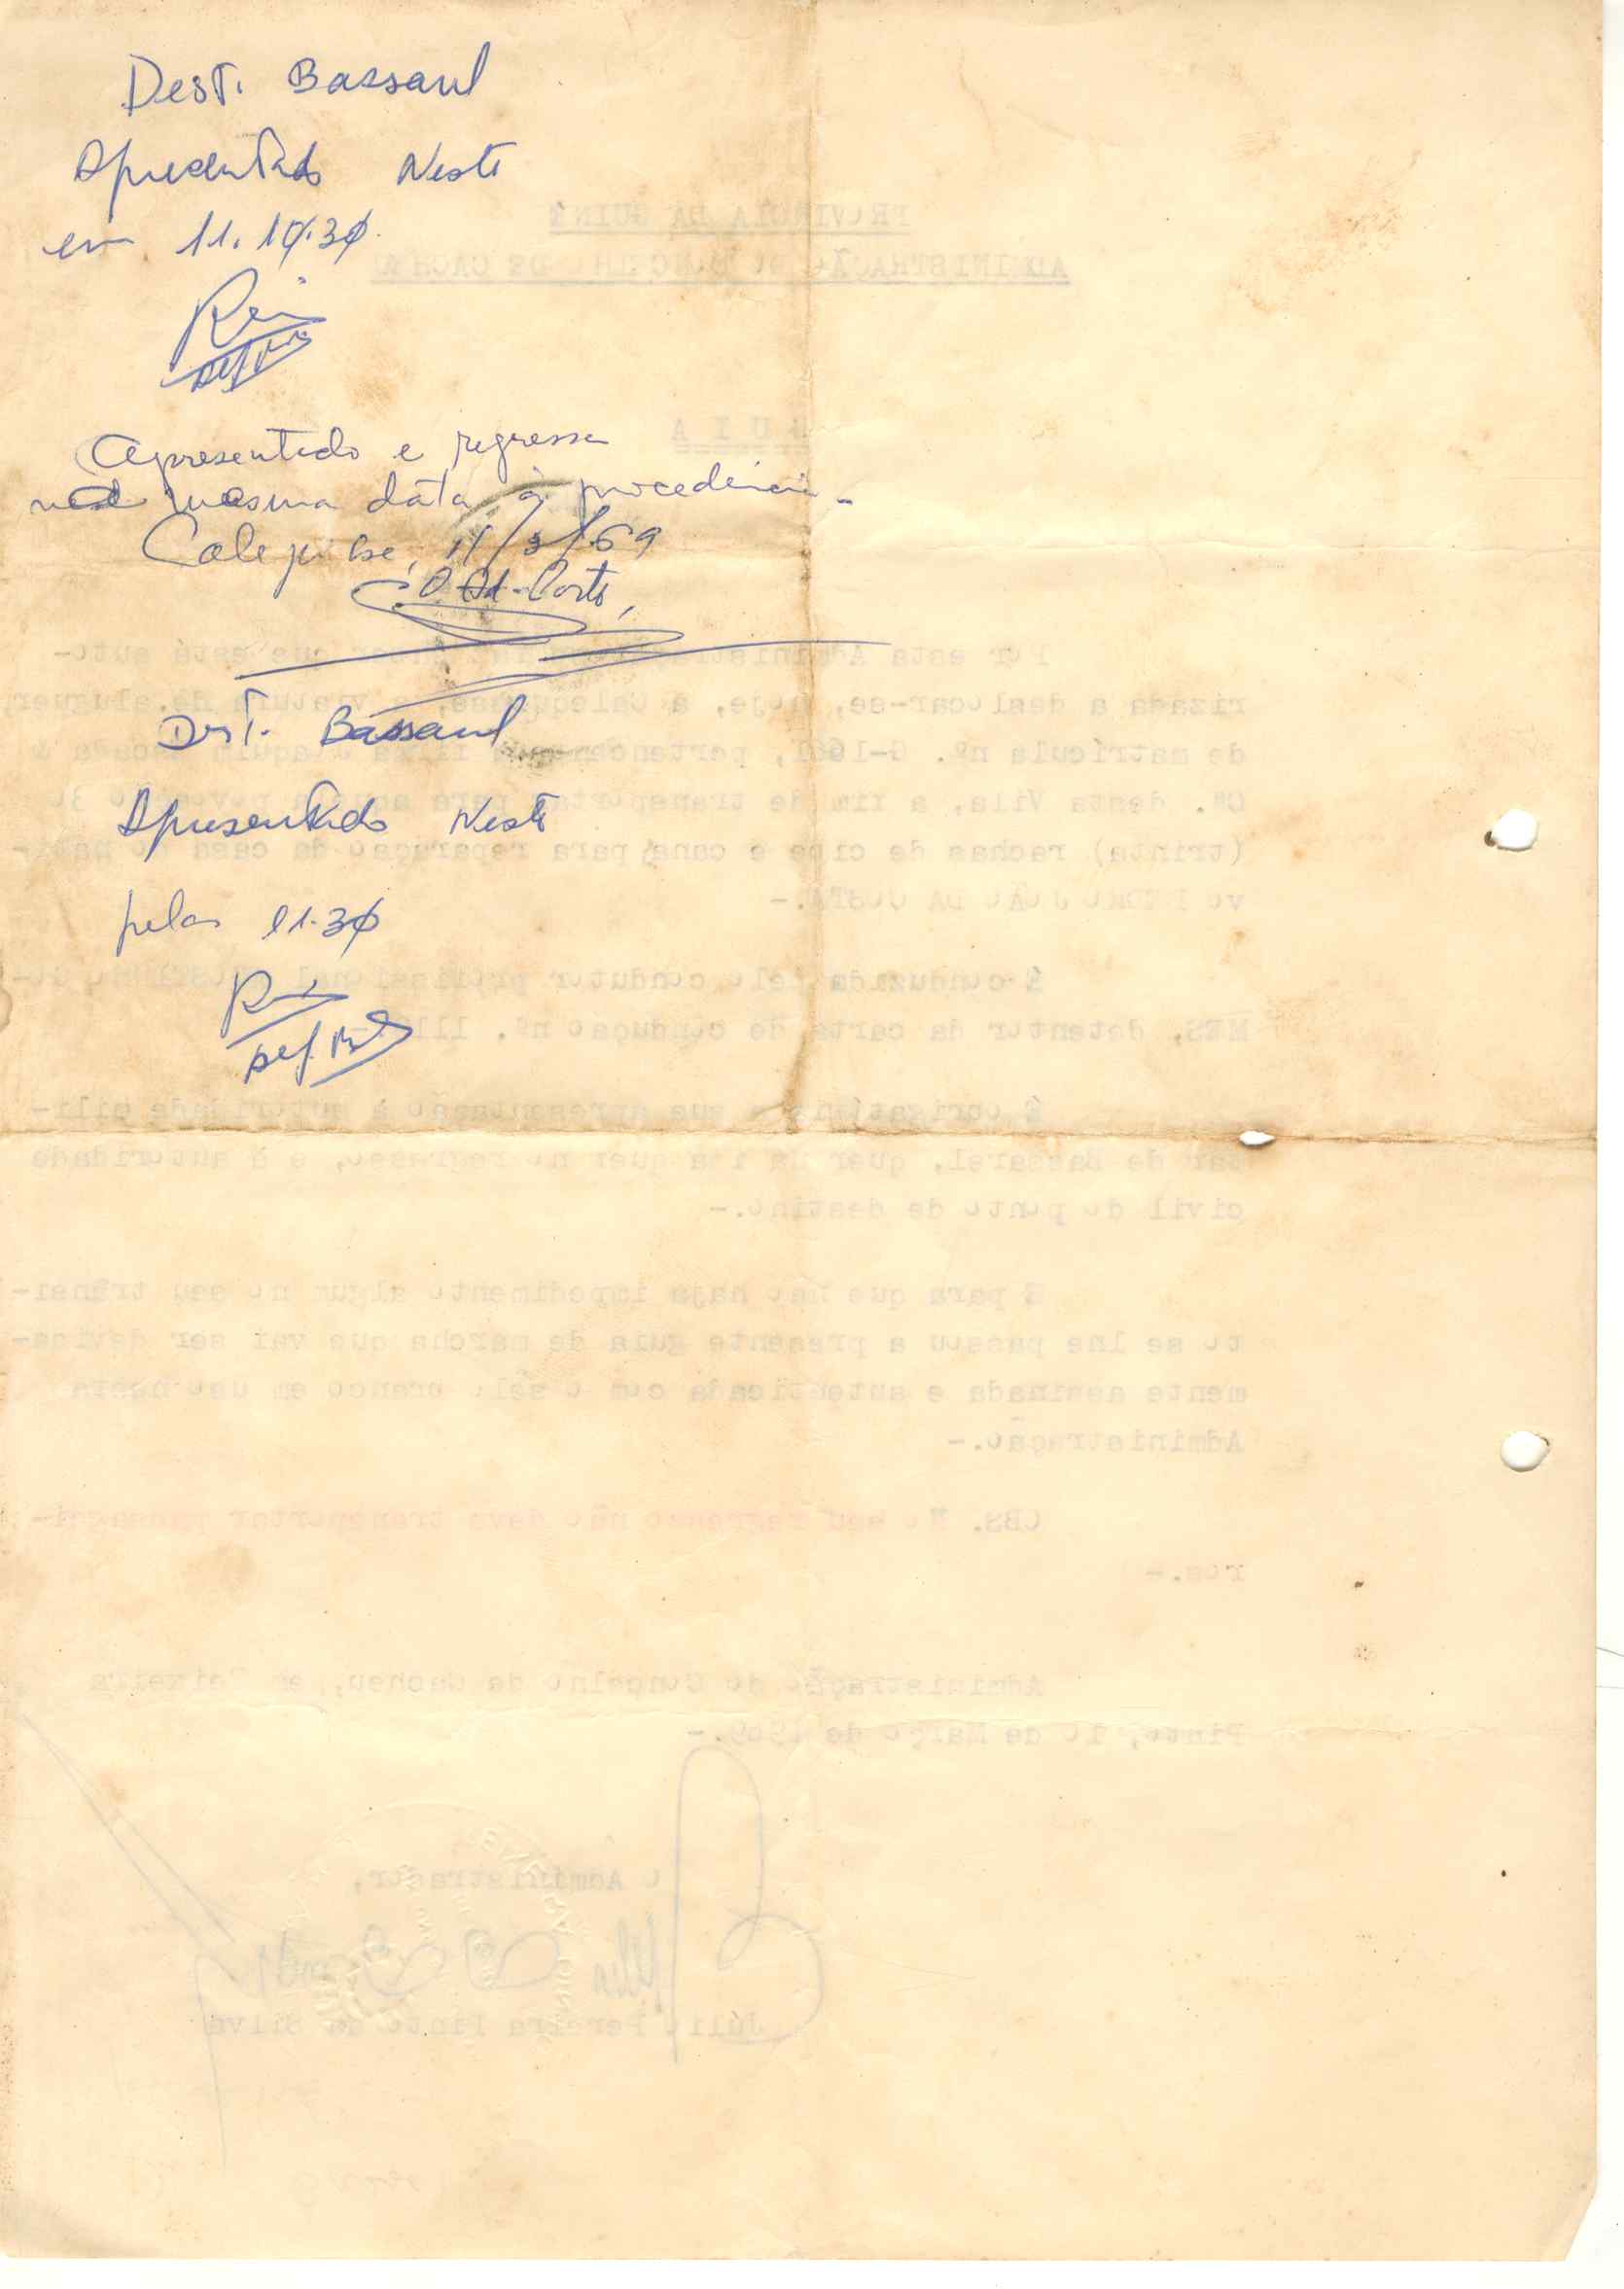 Dest. Bassarel
Apresentado Neste
em 11.10.30.
Apresentado e regressa
na mesma data à procedência.
Calequisse, 11/3/69
O Ad. Posto,
Dest. Bassarel
Apresentado Neste
pelas 11.30
PROVINCIA DA GUINÉ
ADMINISTRAÇÃO DO CONCELHO DE CACHEU
GUIA
Por esta Administração que está auto-
rizada a deslocar-se, hoje, a Calequisse, a viatura de aluguer,
de matrícula nº. G-
Cª. desta Vila, a fim de transportar para 30
(trinta) rachas de cibe e cana para reparação da casa do nati-
vo JOÃO DA COSTA.-
É conduzida pelo condutor profissional GO-
MES, detentor da carta de condução nº.
É obrigatória a sua apresentação à autoridade mili-
tar de Bassarel, quer na ida quer no regresso, e à autoridade
civil do ponto de destino.-
E para que não haja impedimento algum no seu trânsi-
to se lhe passou a presente guia de marcha que vai ser devida-
mente assinada e autenticada com o sêlo branco em uso nesta
Administração.-
OBS. No seu regresso não deve transportar passagei-
ros.-
Administração do Concelho de Cacheu, em Teixeira
Pinto, 10 de Março de 1969.-
O Administrador,
Júlio Pereira Pinto da Silva